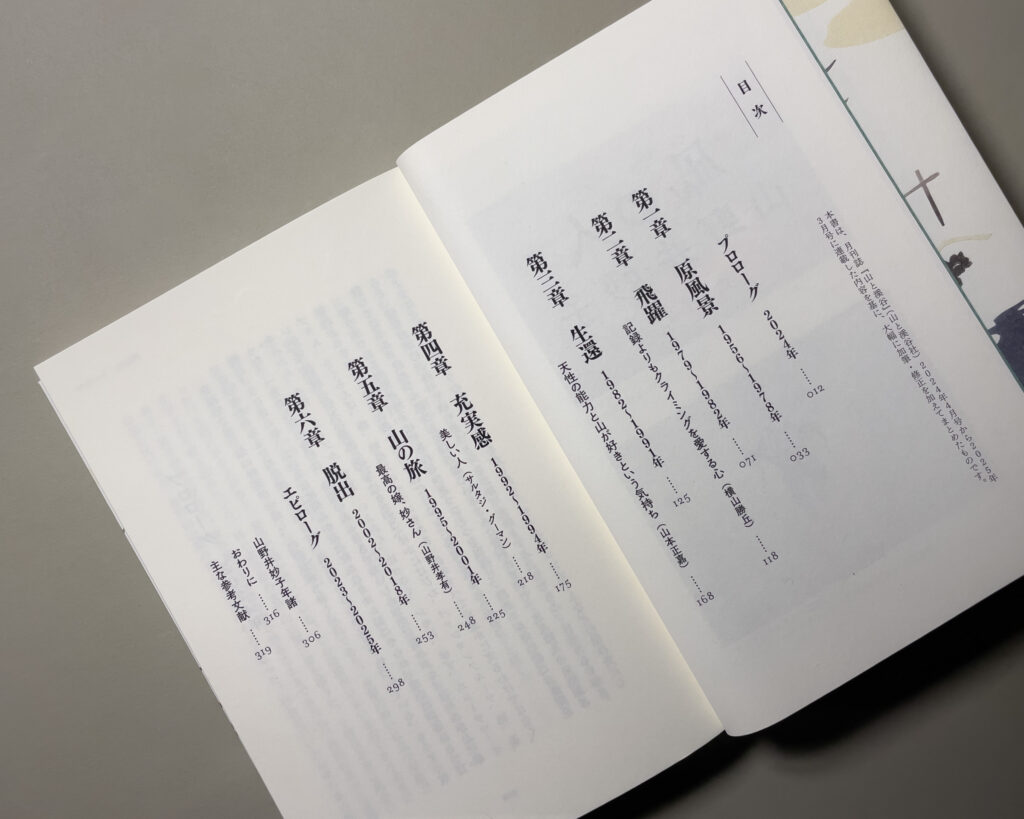 目次
本書は、月刊誌『山と溪谷』(山と溪谷社)2024年4月号から2025年
3月号に連載した内容を基に、大幅に加筆・修正を加えてまとめたものです。
プロローグ 2024年 …… 012
第一章 原風景 1956〜1978年 …… 033
第二章 飛躍 1979〜1982年 …… 071
記録よりもクライミングを愛する心(横山勝丘) …… 118
第三章 生還 1982〜1991年 …… 125
天性の能力と山が好きという気持ち(山本正嘉) …… 168
第四章 充実感 1992〜1994年 …… 175
美しい人(サルタジ・グーマン) …… 218
第五章 山の旅 1995〜2001年 …… 225
最高の嫁、妙さん(山野井孝有) …… 248
第六章 脱出 2002〜2018年 …… 253
エピローグ 2023〜2025年 …… 298
山野井妙子年譜 …… 306
おわりに …… 316
主な参考文献 …… 319